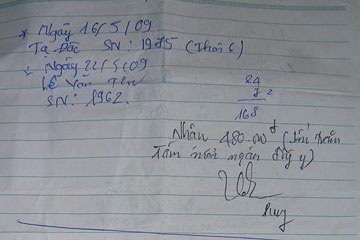 * Ngày 16/5/09
Tạ Đắc SN: 1975 (Thôn 6)
Ngày 22/5/09
Lê Văn
SN: 1962.
24
2
168
Nhận 480.000đ (bốn trăm
Tám mươi ngàn đồng y)
Huy